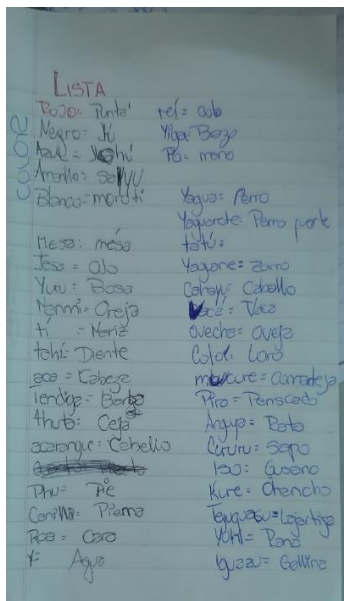 LISTA
ROJO= Puntá
Negro= Jú
Azul=
Amarillo= saiyu
Blanco= moroti
Mesa= mésa
Jesa= Ojo
Yuru= Bosa
Nanmi= Oreja
tí = Nariz
tahi= Diente
aca= Cabeza
tendiga= Barba
4huta= Ceja
acarangue= Cabello
Phu= Píe
Canilla= Pierna
Roa= Cara
Y= Agua
reí= cola
Yiga= Brazo
Po= mano
Yagua= Perro
Yaguarete= Perro
tatú=
Yagane= zurro
Cabayu= Caballo
Vacá= Vaca
ovecha= oveja
Cotor= Loro
= Comadreja
Piro= Penscado
Anguya= Rata
Cururu= Sapo
Iso= Gusano
Kure= Chancho
Teyuguasu= Lagartija
Yuhi= Rana
Iguazu= Gallina